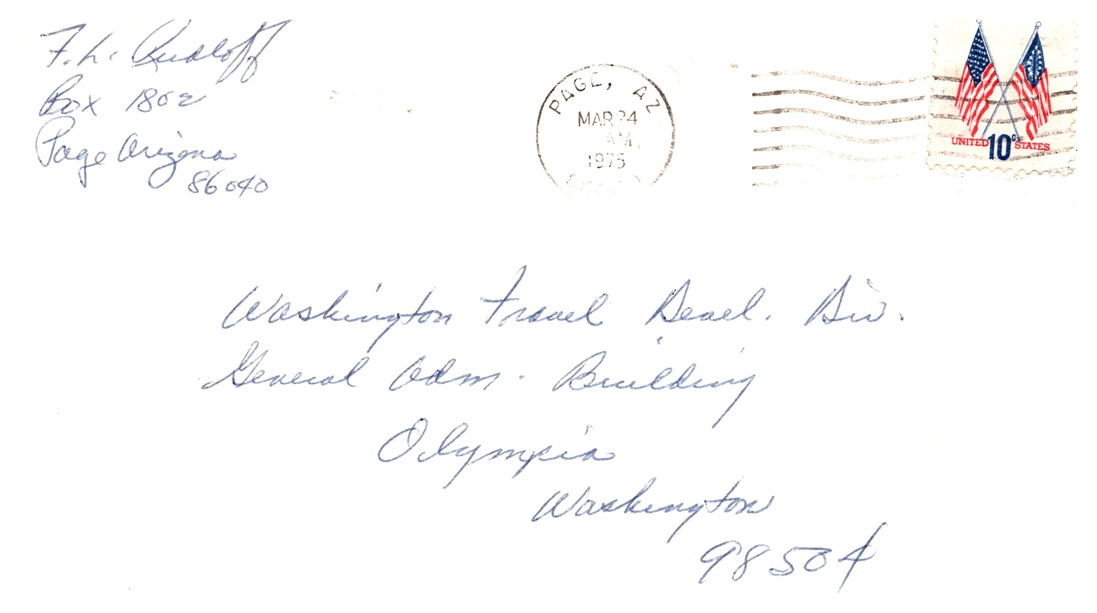 F. L. Rudloff
Box 1802
Page Arizona
86040
PAGE, AZ
MAR 24
AM
1975
UNITED 10c STATES
Washington Travel Devel. Div.
General Adm. Building
Olympia
Washington
98504